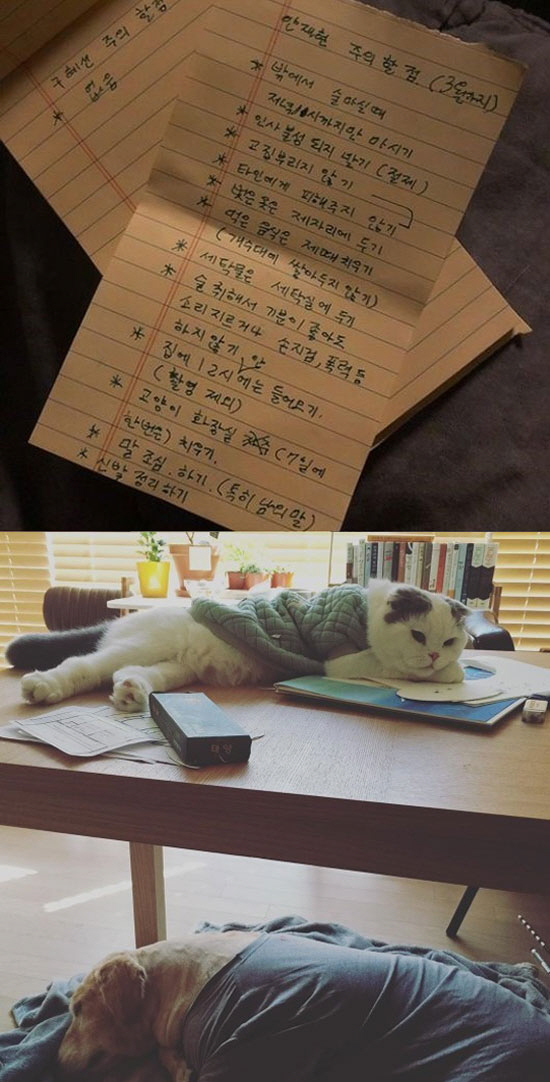 구혜선 주의 할점
* 없음
안재현 주의할점 (3일까지)
* 밖에서 술마실때
저녁 시까지만 마시기
* 인사불성 되지 말기 (절제)
* 고집부리지 않기
* 타인에게 피해주지 않기
* 벗은 옷은 제자리에 두기
* 먹은 음식은 제때 치우기
(개수대에 쌓아두지 않기)
* 세탁물은 세탁실에 두기
* 술 취해서 기분이 좋아도
소리지르거나 손찌검, 폭력 등
하지 않기 안
* 집에 12시에는 들어오기.
(촬영 제외)
* 고양이 화장실 (7일에
한번은) 치우기.
* 말 조심. 하기. (특히 남의 말)
* 신발 정리하기
태양